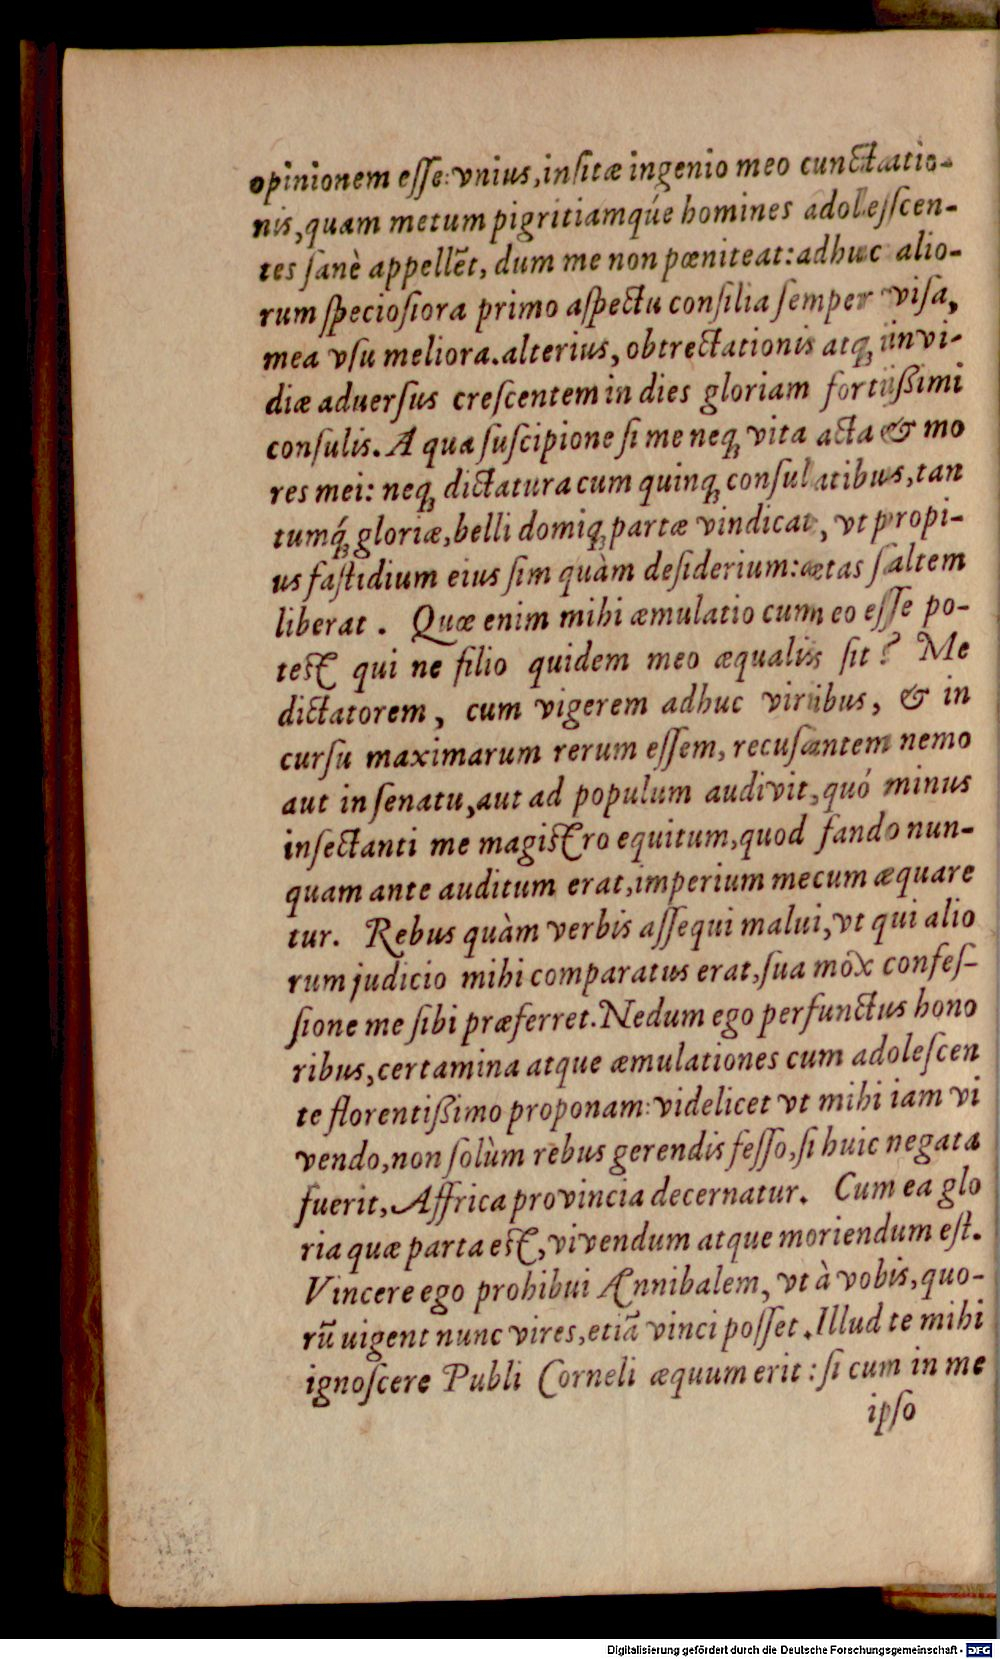 opinionem eſſe: vnius, inſitæ ingenio meo cunctatio-
nis, quam metum pigritiamqúe homines adoleſſcen-
tes ſanè appellẽt, dum me non pœniteat: adhuc alio-
rum ſpecioſiora primo aſpectu conſilia ſemper viſa,
mea vſu meliora. alterius, obtrectationis atq; invi-
diæ aduerſus creſcentem in dies gloriam fortiißimi
conſulis. A qua ſuſcipione ſi me neq; vita acta & mo
res mei: neq; dictatura cum quinq; conſulatibus, tan
tumq́; gloriæ, belli domiq; partæ vindicat, vt propi-
us faſtidium eius ſim quàm deſiderium: ætas ſaltem
liberat . Quæ enim mihi æmulatio cum eo eſſe po-
teſt qui ne filio quidem meo æqualis ſit? Me
dictatorem, cum vigerem adhuc viribus, & in
curſu maximarum rerum eſſem, recuſantem nemo
aut in ſenatu, aut ad populum audivit, quó minus
inſectanti me magiſtro equitum, quod fando nun-
quam ante auditum erat, imperium mecum æquare
tur. Rebus quàm verbis aſſequi malui, vt qui alio
rum judicio mihi comparatus erat, ſua mox confeſ-
ſione me ſibi præferret. Nedum ego perfunctus hono
ribus, certamina atque æmulationes cum adoleſcen
te florentißimo proponam: videlicet vt mihi iam vi
vendo, non ſolùm rebus gerendis feſſo, ſi huic negata
fuerit, Affrica provincia decernatur. Cum ea glo
ria quæ parta eſt, vivendum atque moriendum eſt.
Vincere ego prohibui Ænnibalem, vt à vobis, quo-
rũ uigent nunc vires, etiã vinci poſſet. Illud te mihi
ignoſcere Publi Corneli æquum erit: ſi cum in me
ipſo
Digitalisierung gefördert durch die Deutsche Forschungsgemeinschaft - DFG